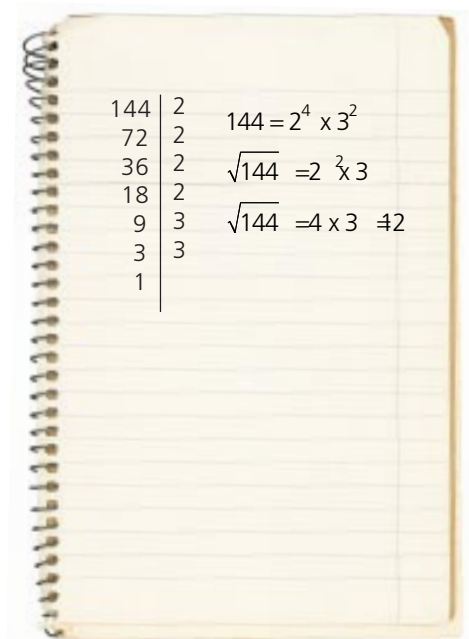 144 | 2
72 | 2
36 | 2
18 | 2
9 | 3
3 | 3
1 |
144 = 2⁴ x 3²
√144 = 2² x 3
√144 = 4 x 3 = 12